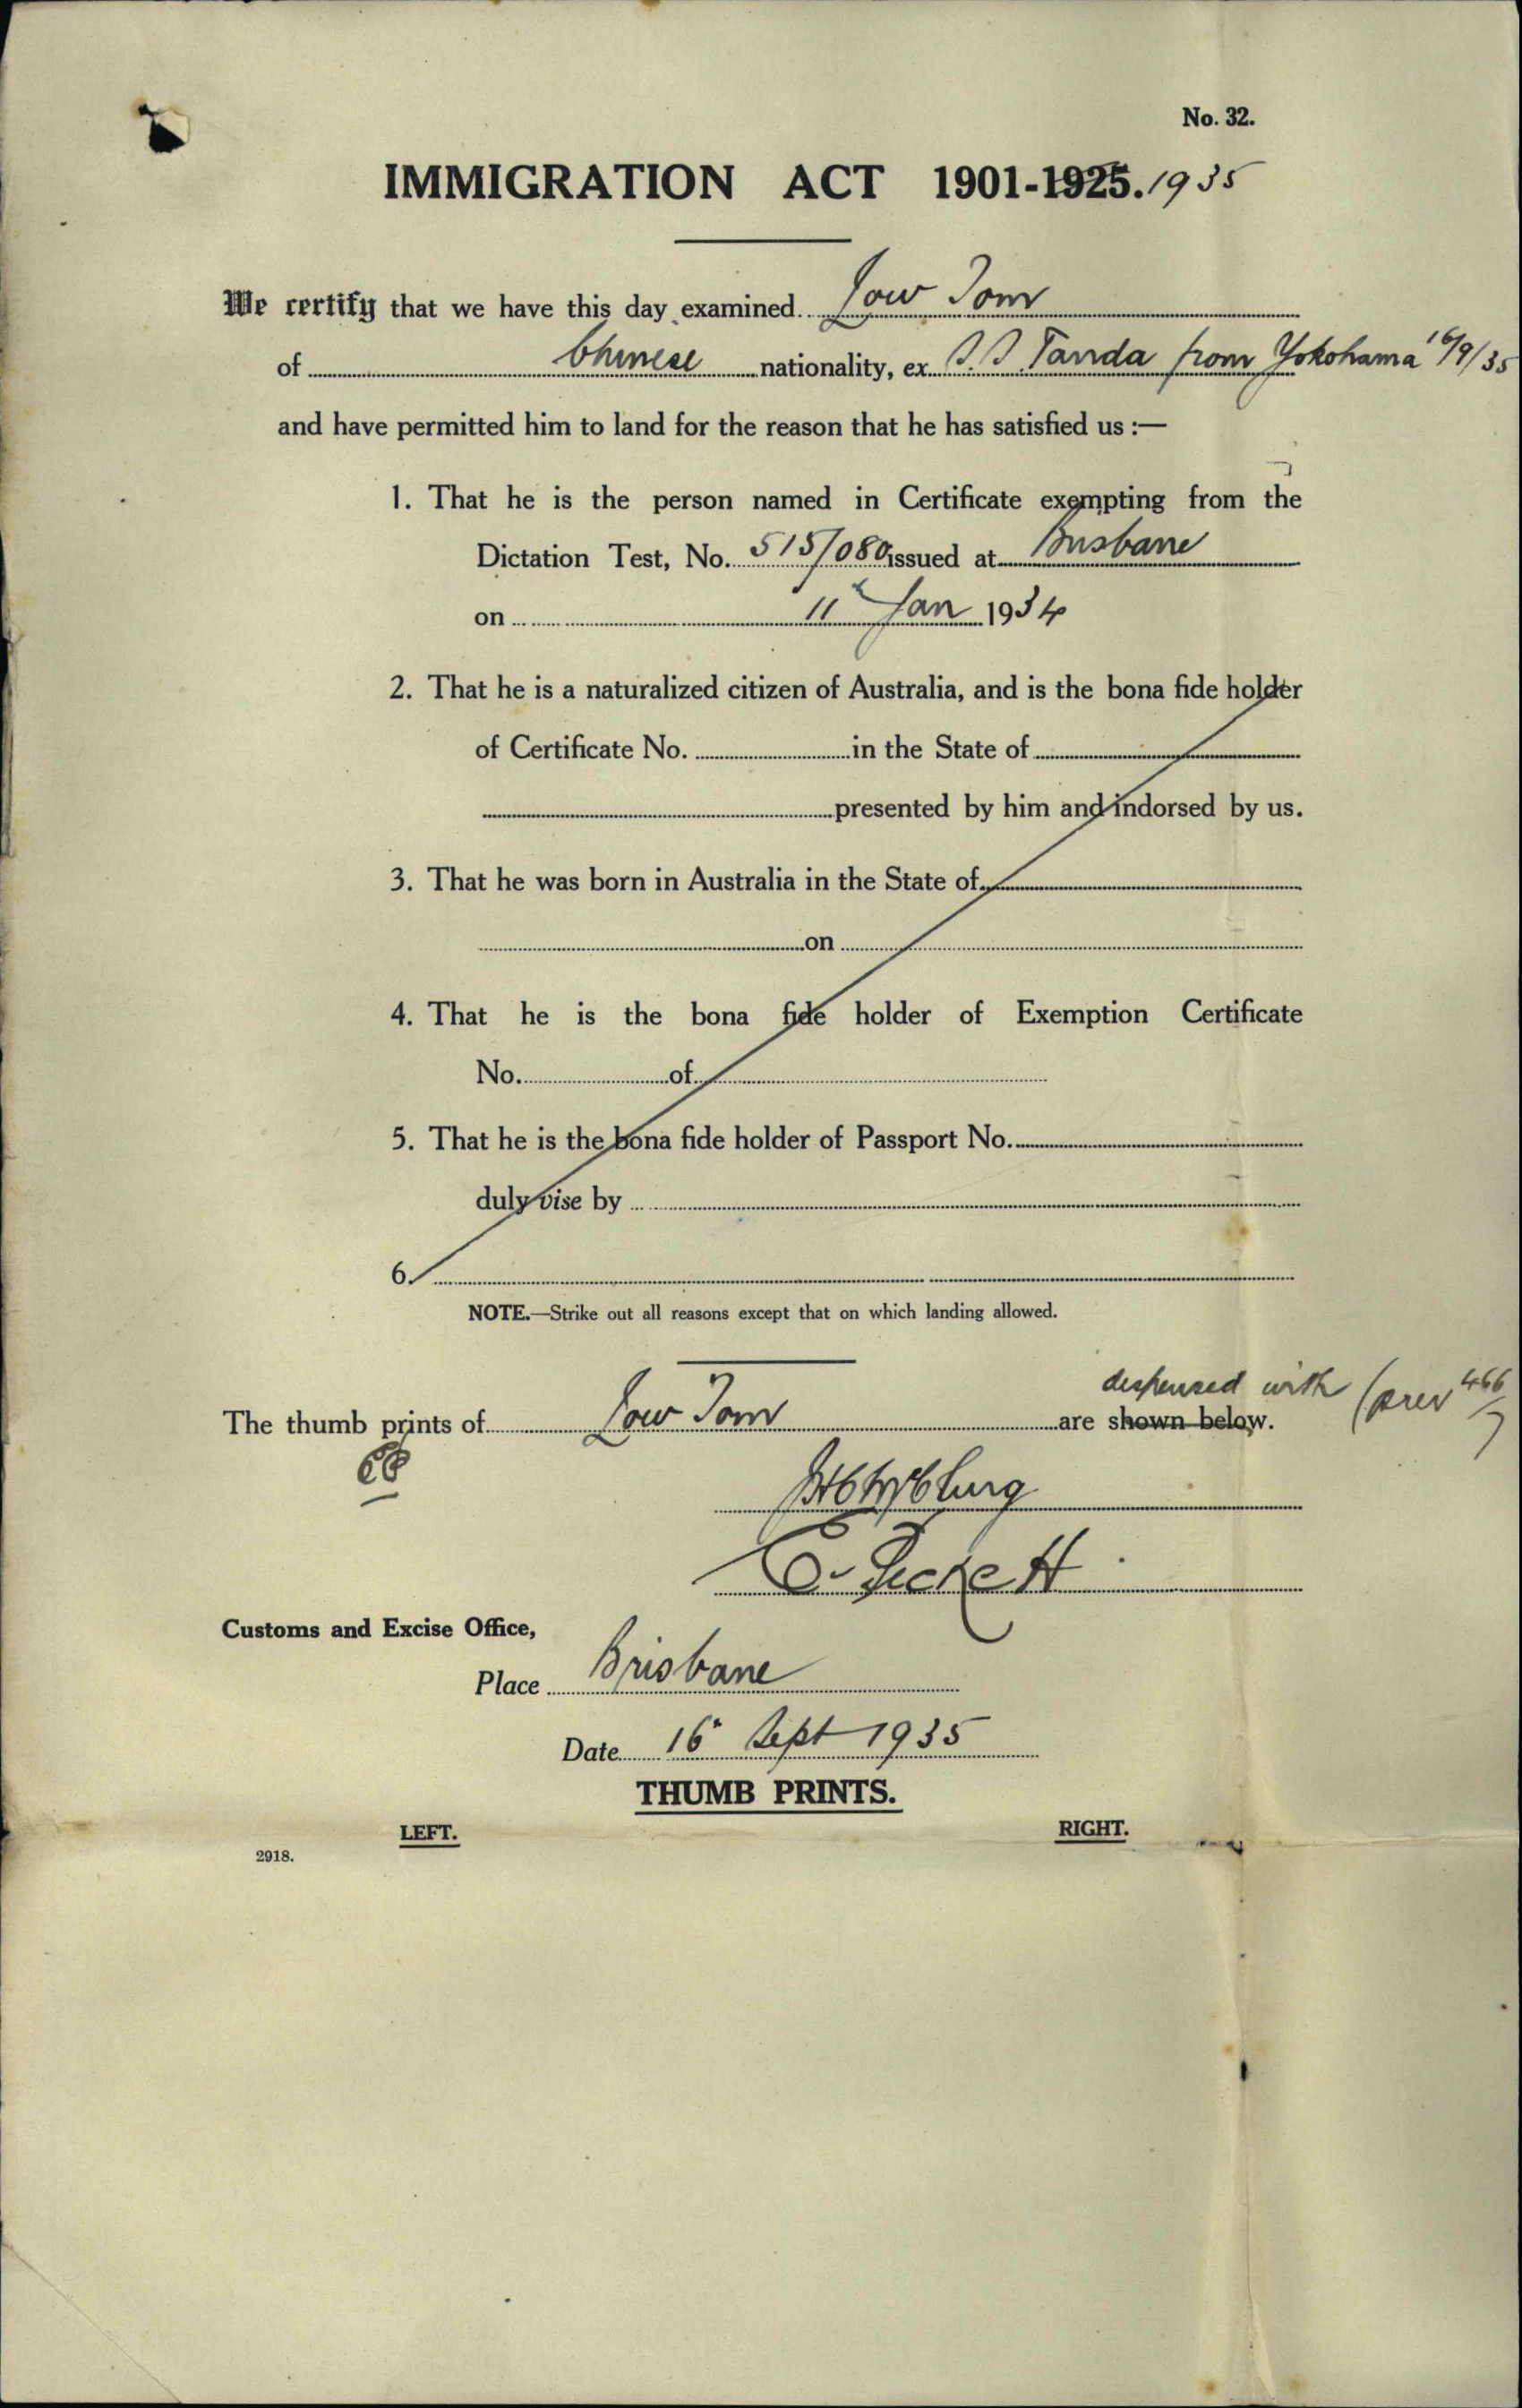 No. 32.
IMMIGRATION ACT 1901-1925. 1935
We certify that we have this day examined Low Tom
of Chinese nationality, ex S.S. Tanda from Yokohama 16/9/35
and have permitted him to land for the reason that he has satisfied us :—
1. That he is the person named in Certificate exempting from the
Dictation Test, No. 515/080 issued at Brisbane
on 11th Jan 1934
2. That he is a naturalized citizen of Australia, and is the bona fide holder
of Certificate No. in the State of
presented by him and indorsed by us.
3. That he was born in Australia in the State of
on
4. That he is the bona fide holder of Exemption Certificate
No. of
5. That he is the bona fide holder of Passport No.
duly vise by
6.
NOTE.—Strike out all reasons except that on which landing allowed.
dispensed with (prev 466/7
The thumb prints of Low Tom are shown below.
E. Peckett
Customs and Excise Office,
Place Brisbane
Date 16th Sept 1935
THUMB PRINTS.
LEFT. RIGHT.
2918.